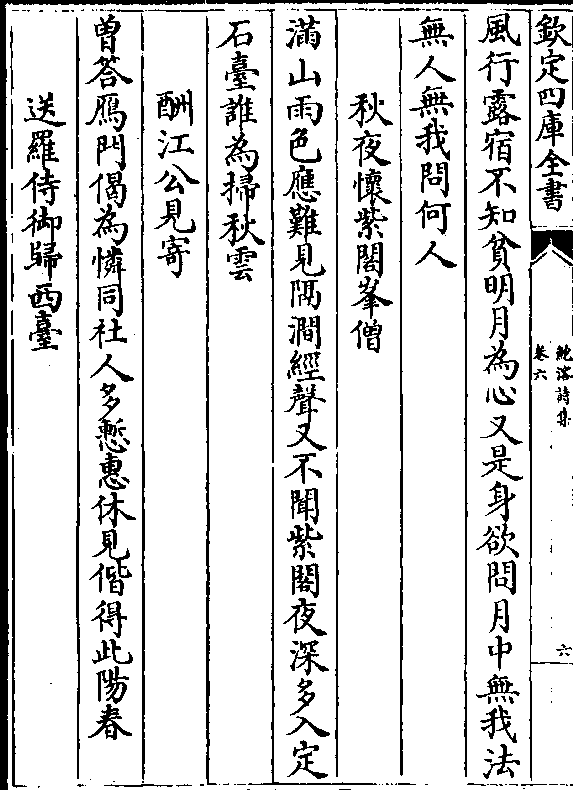 欽定四庫全書
鮑溶詩集
卷六
六
風行露宿不知貧明月為心又是身欲問月中無我法
無人無我問何人
秋夜懷紫閣峯僧
滿山雨色應難見隔澗經聲又不聞紫閣夜深多入定
石臺誰為掃秋雲
酬江公見寄
曽答鴈門偈為憐同社人多慙惠休見偕得此陽春
送羅侍御歸西臺